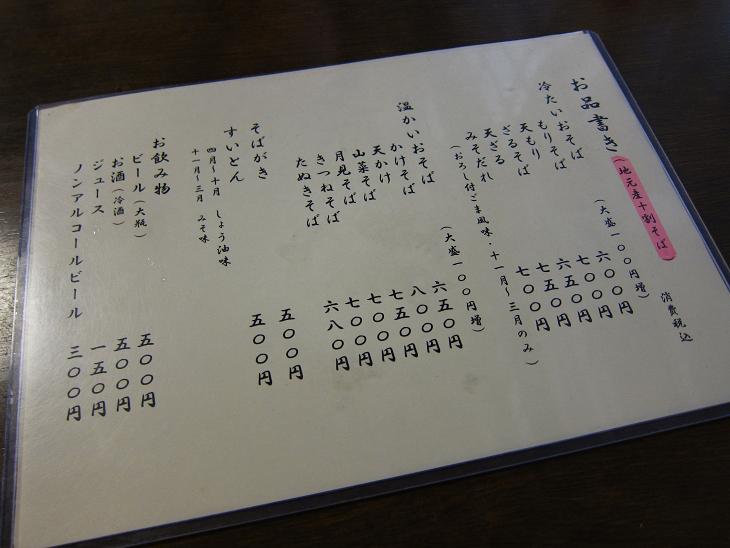 お品書き (地元産十割そば) 消費税込
冷たいおそば (大盛一〇〇円増)
もりそば 六〇〇円
天もり 七〇〇円
ざるそば 六五〇円
天ざる 七五〇円
みそだれ 七〇〇円
(おろし付ごま風味・十一月～三月のみ)
温かいおそば (大盛一〇〇円増)
かけそば 六五〇円
天かけ 八〇〇円
山菜そば 七五〇円
月見そば 七〇〇円
きつねそば 七〇〇円
たぬきそば 六八〇円
そばがき 五〇〇円
すいとん 五〇〇円
四月～十月 しょう油味
十一月～三月 みそ味
お飲み物
ビール(大瓶) 五〇〇円
お酒(冷酒) 五〇〇円
ジュース 一五〇円
ノンアルコールビール 三〇〇円